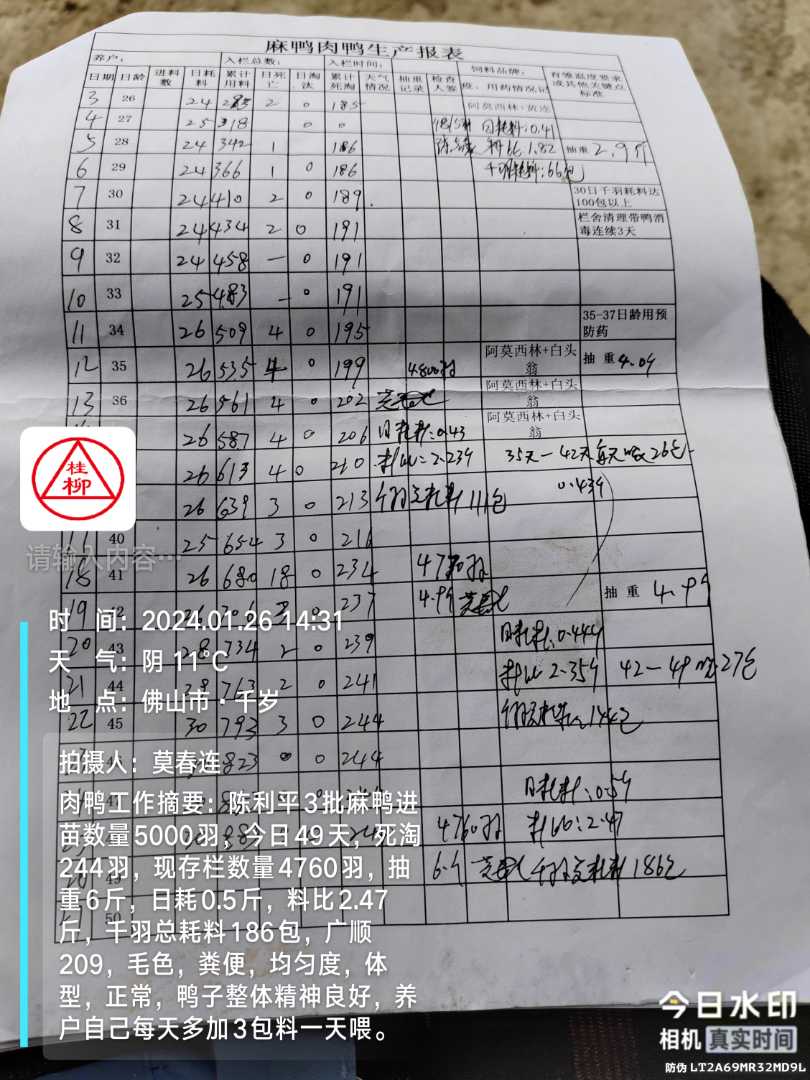 麻鸭肉鸭生产报表
养户: 入栏总数: 入栏时间: 饲料品牌:
日期 日龄 进料数 日耗料 累计用料 日死亡 日淘汰 累计死淘 天气情况 抽重记录 检查人签 用药情况记 有等温度要求或其他关键点标准
3 26 24 2 0 185 阿莫西林+黄连
4 27 25 318 0 0 日耗料:0.41
5 28 24 342 1 186 料比1.82 抽重 2.9斤
6 29 24 366 1 0 186 66包
7 30 24 410 2 0 189 30日千羽耗料达100包以上
8 31 24 434 2 0 191 栏舍清理带鸭消毒连续3天
9 32 24 458 — 0 191
10 33 25 483 — 0 191
11 34 26 509 4 0 195 35-37日龄用预防药
12 35 26 535 4 0 199 4800羽 阿莫西林+白头翁 抽重 4.0斤
13 36 26 561 4 0 202 阿莫西林+白头翁
26 587 4 0 206 日耗料:0.43 阿莫西林+白头翁
26 613 4 0 210 料比=2.23斤 35天—42天每天吃26包
26 639 3 0 213 千羽总耗料111包 0.43斤
40 25 654 3 0 216
18 41 26 680 18 0 234 4770羽
19 42 237 4.9斤 抽重 4.9斤
20 43 28 734 2 0 239 日耗料:0.44斤
21 44 28 763 2 0 241 料比2.35斤 42—49 27包
22 45 30 793 3 0 244
46 823 0 0 244
日耗料:0.5斤
4760羽 料比:2.47
6.斤 千羽总耗料186包
50
桂柳
请输入内容…
时 间: 2024.01.26 14:31
天 气: 阴 11°C
地 点: 佛山市·千岁
拍摄人: 莫春连
肉鸭工作摘要: 陈利平3批麻鸭进
苗数量5000羽,今日49天,死淘
244羽,现存栏数量4760羽,抽
重6斤,日耗0.5斤,料比2.47
斤,千羽总耗料186包,广顺
209,毛色,粪便,均匀度,体
型,正常,鸭子整体精神良好,养
户自己每天多加3包料一天喂。
今日水印
相机 真实时间
防伪 LT2A69MR32MD9L